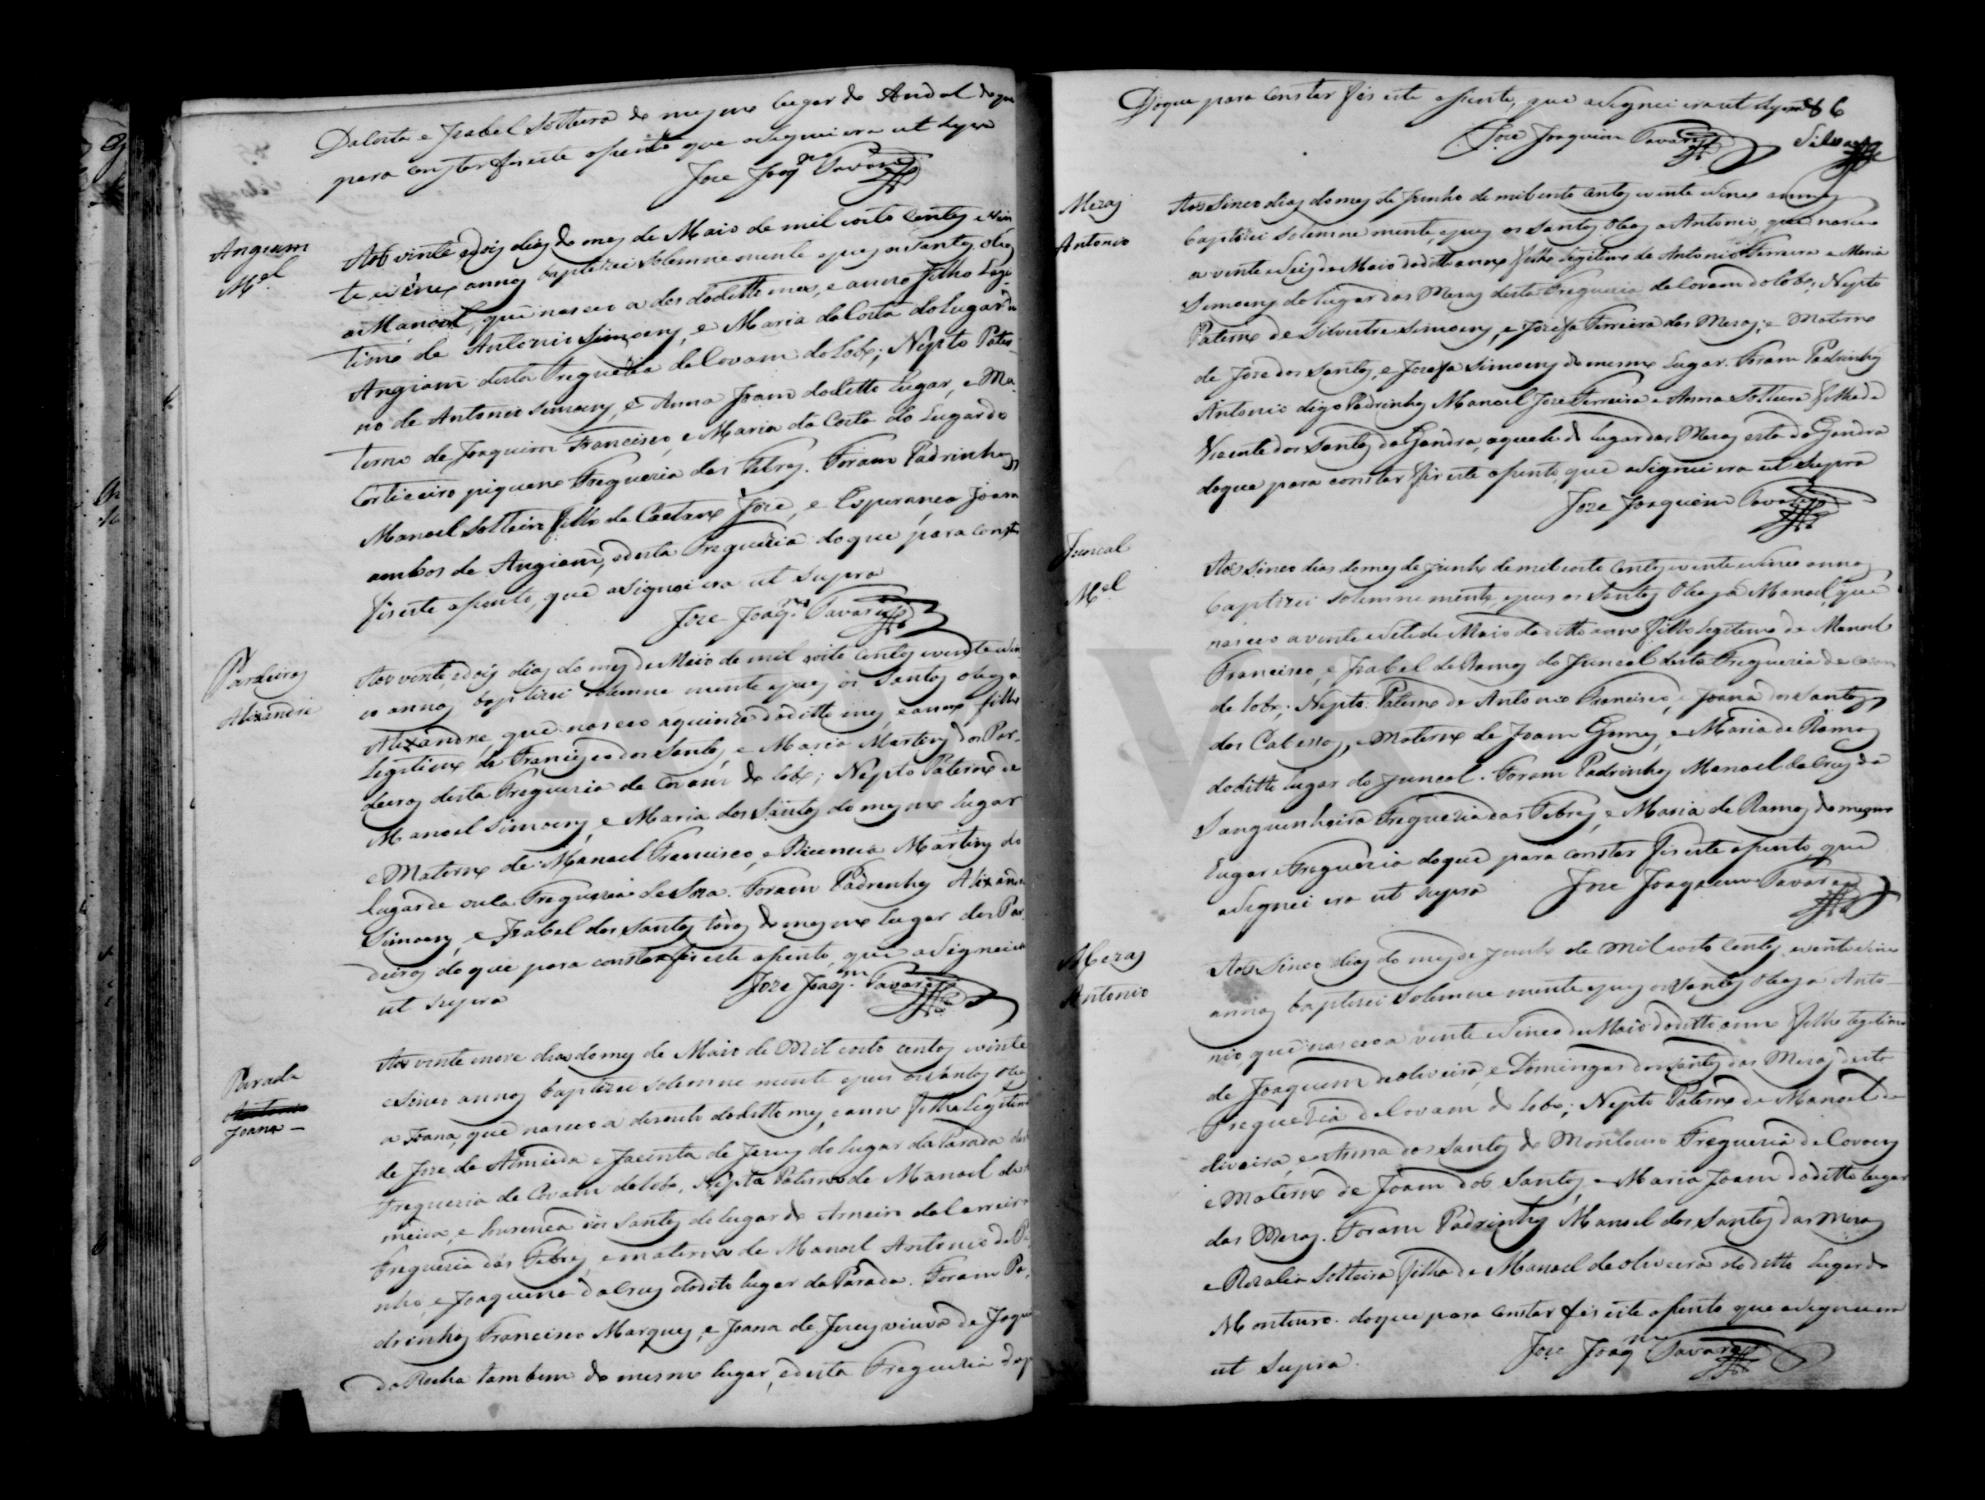 Da Costa e Izabel Solteira do mesmo lugar de Andal do que
para constar fis este aSento que aSignei era ut supra
Joze Joaqm Tavares
Angiam
Mel
Aos vinte e dois dias do mes de Maio de mil oito centos e vin
te e sinco annos baptizei solemne mente e puz os Santos oleos
a Manoel, que nasceo a dos do ditto mes, e anno filho Legi
timo de Antonio Simoens, e Maria da Costa do Lugar de
Angiam desta Freguezia de Covam do Lobo; Nepto Pater
no de Antonio Simoens, e Anna Joam do ditto lugar, e Ma
terno de Joaquim Francisco, e Maria da Costa do Lugar do
Corticeiro piqueno Freguezia das Febres. Foram Padrinhos
Manoel Solteiro filho de Caetano Joze, e Esperança Joana
ambos de Angiam, e desta Freguezia do que para constar
fis este aSento, que aSignei era ut supra
Joze Joaqm Tavares
Pardeiros
Alixandre
Aos vinte, e dois dias do mes de Maio de mil oito centos e vinte e sin
co annos baptizei solemne mente e puz os Santos oleos a
Alixandre, que nasceo a quinze do ditto mes, e anno filho
Legitimo de Francisco dos Santos, e Maria Martins dos Par
deiros desta Freguezia de Covam do Lobo; Nepto Paterno de
Manoel Simoens, e Maria dos Santos do mesmo lugar
e Materno de Manoel Francisco, e Martins do
lugar de Freguezia de Soza. Foram Padrinhos Alixandre
Simoens, e Izabel dos Santos todos do mesmo lugar dos Par
deiros do que para constar fis este aSento, que aSignei era
ut supra Joze Joaqm Tavares
Parada
Joana
Aos vinte nove dias do mes de Maio de Mil oito centos e vinte
e sinco annos baptizei solemne mente e puz os Santos oleos
a Joana, que nasceo a dezouto do ditto mes, e anno filha Legitima
de Joze de Almeida e Jacinta de Jezus do lugar da Parada desta
Freguezia de Covam do Lobo, Nepta Paterna de Manoel de Al
meida, e Lourença dos Santos do lugar de Arneiro da Carreira
Freguezia das Febres, e materna de Manoel Antonio de Pi
nho, e Joaquina da Cruz do dito lugar da Parada. Foram Pa
drinhos Francisco Marques, e Joana de Jezus viuva de Joqm
da Rocha tambem do mesmo lugar, e desta Freguezia do q
Do que para constar fis este aSento, que aSignei era ut supra 86
Joze Joaquim Tavares Silva
Mezas
Antonio
Aos Sinco dias do mes de Junho de mil outo centos e vinte e sinco annos
baptizei solemne mente, e puz os Santos oleos a Antonio, que nasceo
a vinte e seis de Maio do ditto anno filho legitimo de Antonio Ferreira e Maria
Simoens do lugar das Mezas desta Freguezia de Covam do Lobo; Nepto
Paterno de Silvestre Simoens, e Jozefa Ferreira das Mezas; e Materno
de Joze dos Santos, e Jozefa Simoens do mesmo Lugar. Foram Padrinhos
Antonio digo Padrinhos Manoel Joze Ferreira e Anna Solteira filha de
Vicente dos Santos da Gandra, aquele do lugar das Mezas esta da Gandra
do que para constar fis este aSento, que aSignei era ut supra
Joze Joaquim Tavares
Juncal
Mel
Aos Sinco dias do mes de Junho de mil oito centos e vinte e sinco annos
baptizei solemne mente, e puz os Santos oleos a Manoel, que
nasceo a vinte e sete de Maio do ditto anno filho Legitimo de Manoel
Francisco, e Izabel de Ramos do Juncal desta Freguezia de Covam
do Lobo; Nepto Paterno de Antonio Francisco, e Joana dos Santos
dos Cabessos, e Materno de Joam Gomes, e Maria de Ramos
do ditto lugar do Juncal. Foram Padrinhos Manoel da Cruz da
Sanguinheira Freguezia das Febres, e Maria de Ramos do mesmo
Lugar e Freguezia do que para constar fis este aSento, que
aSignei era ut supra Joze Joaquim Tavares
Mezas
Antonio
Aos Sinco dias do mes de Junho de mil oito centos e vinte e sinco
annos baptizei solemne mente e puz os Santos oleos a Anto
nio, que nasceo a vinte e sinco de Maio do ditto anno filho legitimo
de Joaquim de oliveira, e Domingas dos Santos das Mezas desta
Freguezia de Covam do Lobo; Nepto Paterno de Manoel de
oliveira, e Anna dos Santos do Montouro Freguezia de Covoens
e Materno de Joam dos Santos, e Maria Joam do ditto lugar
das Mezas. Foram Padrinhos Manoel dos Santos das Mezas
e Rozalia Solteira filha de Manoel de oliveira do ditto lugar do
Montouro. do que para constar fis este aSento que aSignei era
ut supra. Joze Joaqm Tavares